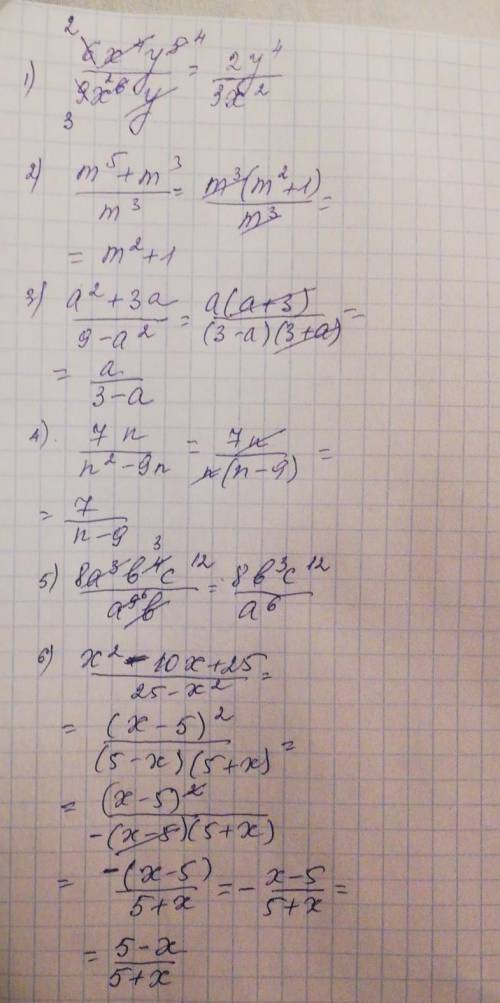 1) 6x⁴y⁵ ⁴ / 9x² ⁶ y = 2y⁴ / 3x²
2
3
2) m⁵+m³ / m³ = m³(m²+1) / m³ =
= m²+1
3) a²+3a / 9-a² = a(a+3) / (3-a)(3+a) =
= a / 3-a
4) 7n / n²-9n = 7n / n(n-9) =
= 7 / n-9
5) 8a³b⁴ ³ c¹² / a⁹ ⁶ b = 8b³c¹² / a⁶
6) x²-10x+25 / 25-x² =
= (x-5)² / (5-x)(5+x) =
= (x-5)² / -(x-5)(5+x)
= -(x-5) / 5+x = - x-5 / 5+x =
= 5-x / 5+x